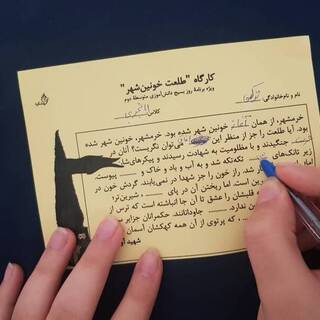 کارگاه "طلعت خونین‌شهر"
ویژه برنامهٔ روز بسیج دانش‌آموزی متوسطهٔ دوم
نام و نام‌خانوادگی:
کلاس:
خرمشهر، از همان خونین شهر شده بود. خرمشهر، خونین شهر شده
بود. آیا طلعت را جز از منظر این می‌توان نگریست؟ آنان در
جنگیدند و با مظلومیت به شهادت رسیدند و پیکرهای‌شان
زیر تانک‌های تکه‌تکه شد و به آب و باد و خاک و پیوست.
شد. راز خون را جز شهدا در نمی‌یابند. گردش خون در
شیرین است اما ریختن آن در پای شیرین‌تر؛
قلبشان را عشق تا آن جا انباشته است که ترس از
ندارد. جاودانانند. حکمرانان جزایر
که پرتوی از آن همه کهکشان آسمان
شهید آو